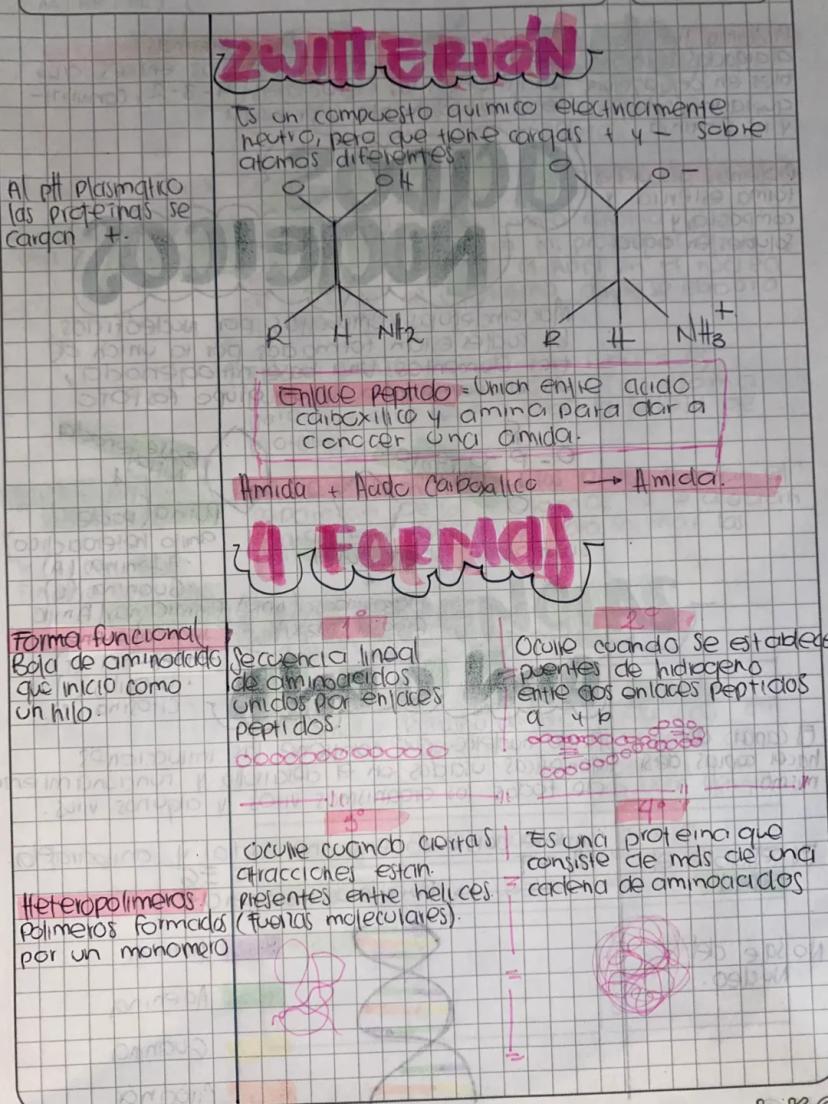 ZWITTERIÓN
Es un compuesto químico eléctricamente
neutro, pero que tiene cargas + y - sobre
atomos diferentes.
Al pH plasmatico
las proteinas se
cargan +.
O OH
R H NH2
O O -
R H NH3 +
Enlace peptido = Unión entre acido
carboxilico y amina para dar a
conocer una amida.
Amida + Acido Carboxilico → Amida.
4 FORMAS
Forma funcional
Bola de aminoacido
que inicio como
un hilo.
1°
Secuencia lineal
de aminoacidos
unidos por enlaces
peptidos.
2°
Ocurre cuando se establece
puentes de hidrogeno
entre dos enlaces peptidos
a y b
3°
Ocurre cuando ciertas
atracciones estan.
presentes entre helices.
(fuerzas moleculares).
4°
Es una proteina que
consiste de mas de una
cadena de aminoacidos
Heteropolimeros.
Polimeros formados
por un monomero